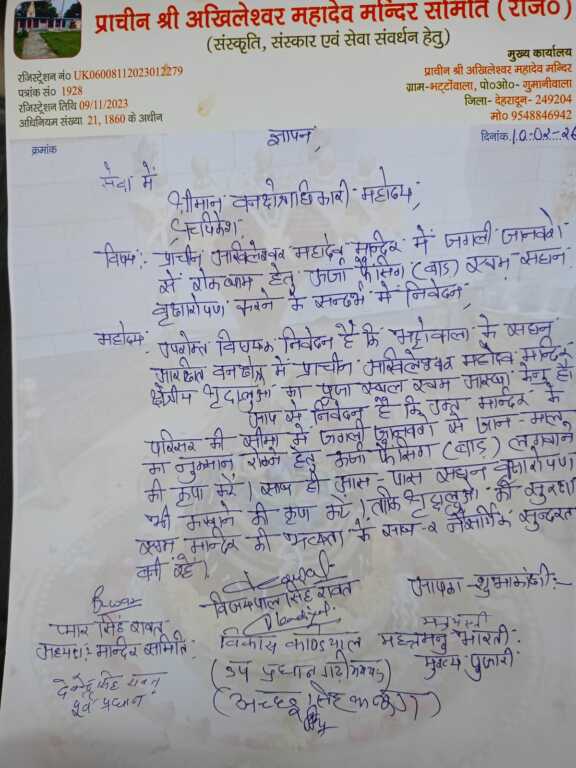 प्राचीन श्री अखिलेश्वर महादेव मन्दिर समिति (राज०)
(संस्कृति, संस्कार एवं सेवा संवर्धन हेतु)
मुख्य कार्यालय
रजिस्ट्रेशन नं० UK06008112023012279
प्राचीन श्री अखिलेश्वर महादेव मन्दिर
पत्रांक सं० 1928
ग्राम-भट्टोंवाला, पो०ओ०- गुमानीवाला
रजिस्ट्रेशन तिथि 09/11/2023
जिला- देहरादून- 249204
अधिनियम संख्या 21, 1860 के अधीन
मो० 9548846942
क्रमांक
दिनांक 10-02-26
ज्ञापन,
सेवा में
श्रीमान वनक्षेत्राधिकारी महोदय,
ऋषिकेश।
विषय:- प्राचीन अखिलेश्वर महादेव मन्दिर में जंगली जानवरों
से रोकथाम हेतु ऊर्जा फैंसिंग (बाड़) एवम सघन
वृक्षारोपण करने के सन्दर्भ में निवेदन,
महोदय, उपरोक्त विषयक निवेदन है कि भट्टोवाला के सघन
आरक्षित वन क्षेत्र में प्राचीन अखिलेश्वर महादेव मन्दिर
क्षेत्रीय श्रृद्धालुओं का पूजा स्थल एवम आस्था केन्द्र है
आप से निवेदन है कि उक्त मन्दिर के
परिसर की सीमा में जंगली जानवरों से जान-माल
का नुकसान रोकने हेतु ऊर्जा फैंसिंग (बाड़) लगवाने
की कृपा करें। साथ ही आस-पास सघन वृक्षारोपण
भी करवाने की कृपा करें। ताकि श्रृद्धालुओं की सुरक्षा
एवम मन्दिर की भव्यता के साथ-२ नैसर्गिक सुन्दरता
बनी रहे।
आपका-शुभाकांक्षी:-
विजयपाल सिंह रावत
प्यार सिंह रावत
अध्यक्ष: मन्दिर समिति
विकास
मनु भारती
मुख्य पुजारी
(उप प्रधान
पूर्व प्रधान